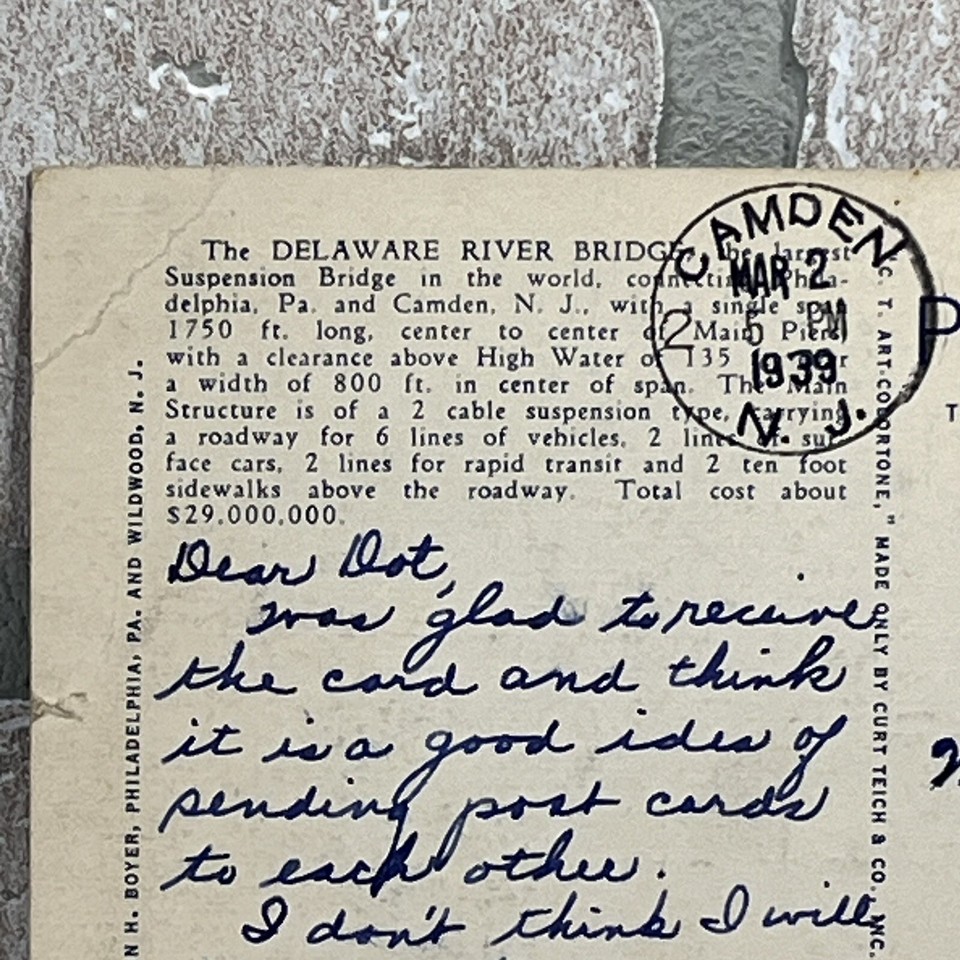 The DELAWARE RIVER BRIDGE, the largest
Suspension Bridge in the world, connecting Phila-
delphia, Pa. and Camden, N. J., with a single span
1750 ft. long, center to center of Main Piers,
with a clearance above High Water of 135
a width of 800 ft. in center of span. The Main
Structure is of a 2 cable suspension type, carrying
a roadway for 6 lines of vehicles, 2 lines of sur-
face cars, 2 lines for rapid transit and 2 ten foot
sidewalks above the roadway. Total cost about
$29,000,000.
CAMDEN
MAR 2
5 PM
1939
N. J.
2
Dear Dot,
was glad to receive
the card and think
it is a good idea of
sending post cards
to each other.
I don't think I will
N H. BOYER, PHILADELPHIA, PA. AND WILDWOOD, N. J.
C. T. ART-COLORTONE," MADE ONLY BY CURT TEICH & CO., INC.